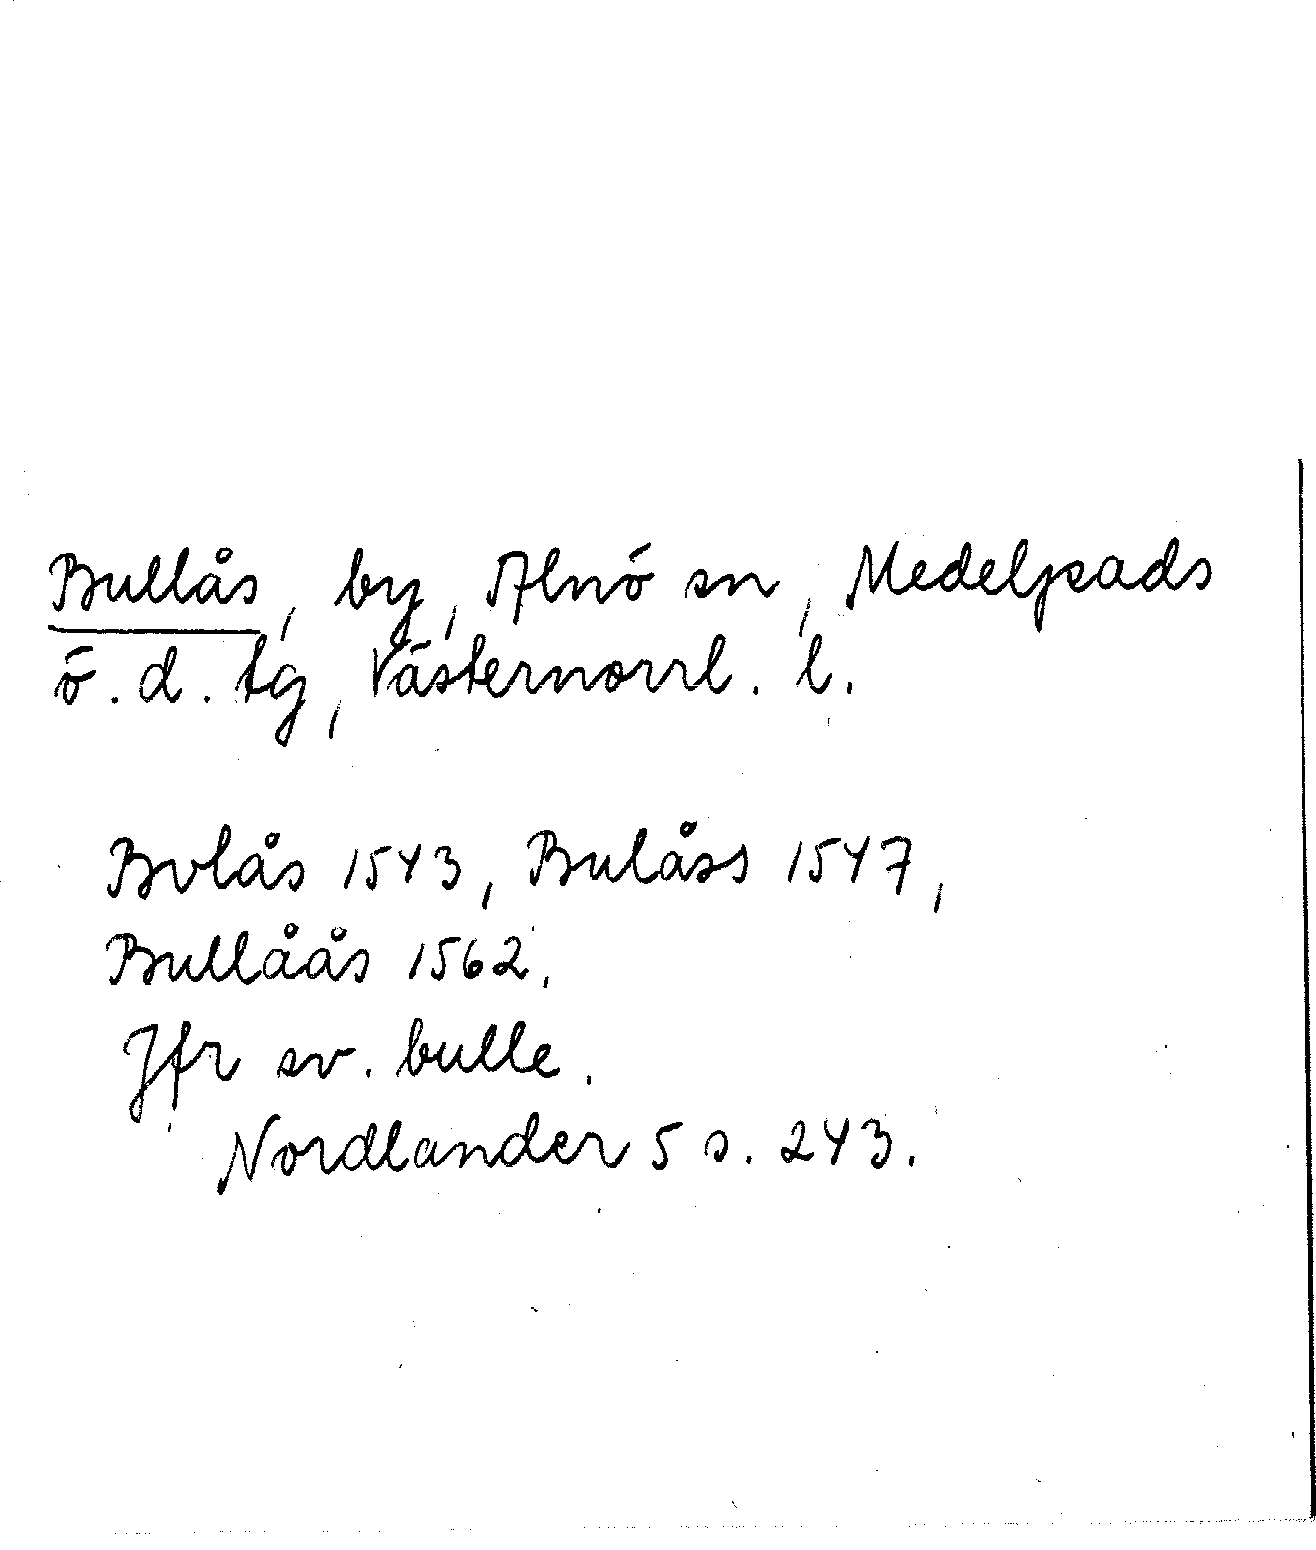 Bullås, by, Alnö sn, Medelpads
ö. d. tg, Västernorrl. l.
Bvlås 1543, Bulåss 1547,
Bullåås 1562.
Jfr sv. bulle.
Nordlander 5 s. 243.